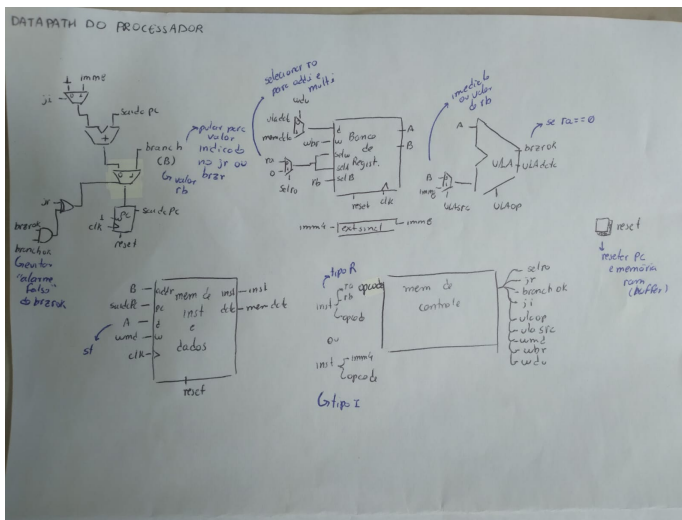 DATAPATH DO PROCESSADOR
1 imm8
ji
saida pc
+
branch
(B)
pular para
valor
indicado
no jr ou
brzr
valor
rb
0 1
jr
PC
saida pc
clk
reset
brzrok
branchok
evitar
"alarme
falso"
do brzrok
selecionar r0
para addi e
multi
wdu
uladdt
memddt
wbr
ra
0
selro
rb
d
w
selw
selA
selB
Banco
de
Regist.
A
B
reset
clk
imm4
ext sinal
imm8
imediato
ou valor
do rb
A
B
imm8
ULAsrc
ULA
ULAop
se ra==0
brzrok
reset
resetar pc
e memória
ram
(buffer)
B
saidaPc
A
st
wmd
clk
addr
pc
d
w
mem de
inst
e
dados
inst
ddt
inst
memddt
reset
tipo R
inst
ra
rb
opcode
ou
inst
imm4
opcode
tipo I
opcode
mem de
controle
selro
jr
branchok
ji
ulaop
ula src
wmd
wbr
wdu